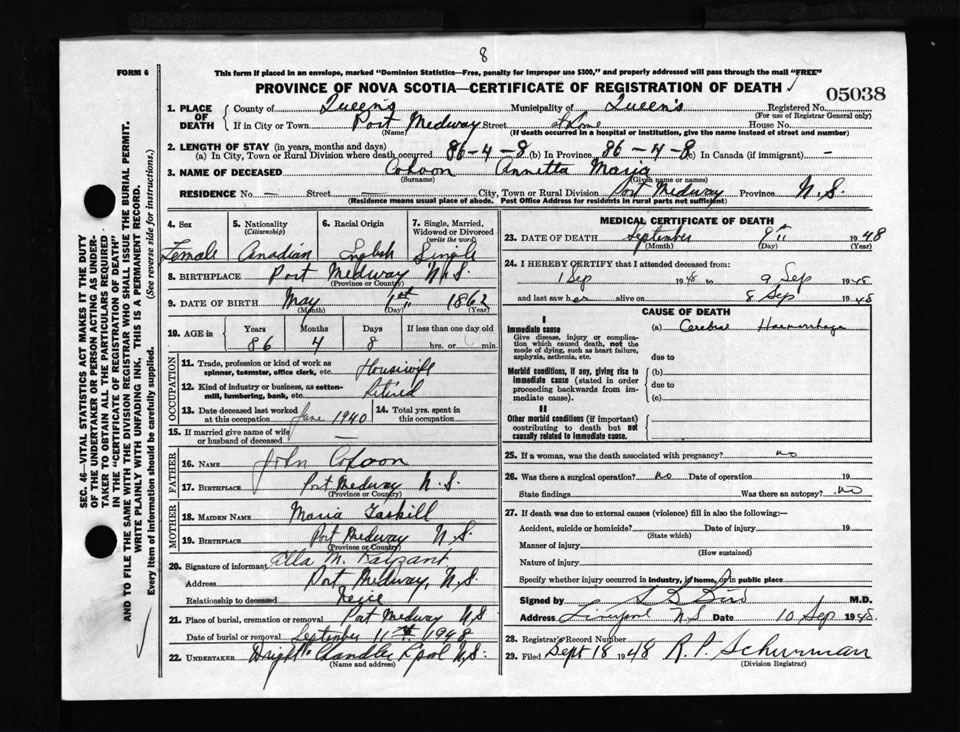 8
FORM 6
This form if placed in an envelope, marked "Dominion Statistics—Free, penalty for improper use $300," and properly addressed will pass through the mail "FREE"
PROVINCE OF NOVA SCOTIA—CERTIFICATE OF REGISTRATION OF DEATH
05038
1. PLACE OF DEATH County of Queen's Municipality of Queen's Registered No.
(For use of Registrar General only)
If in City or Town Port Medway Street at home House No.
(Name) (If death occurred in a hospital or institution, give the name instead of street and number)
2. LENGTH OF STAY (in years, months and days)
(a) In City, Town or Rural Division where death occurred 86-4-8 (b) In Province 86-4-8 (c) In Canada (if immigrant) —
3. NAME OF DECEASED Cohoon Annetta Maria
(Surname) (Given name or names)
RESIDENCE No. — Street — City, Town or Rural Division Port Medway Province N.S.
(Residence means usual place of abode. Post Office Address for residents in rural parts not sufficient)
4. Sex 5. Nationality (Citizenship) 6. Racial Origin 7. Single, Married, Widowed or Divorced (write the word)
Female Canadian English Single
8. BIRTHPLACE Port Medway N.S.
(Province or Country)
9. DATE OF BIRTH May 1st 1862
(Month) (Day) (Year)
10. AGE in Years Months Days If less than one day old
86 4 8 hrs. or min.
OCCUPATION
11. Trade, profession or kind of work as spinner, teamster, office clerk, etc. Housewife
12. Kind of industry or business, as cotton-mill, lumbering, bank, etc. Retired
13. Date deceased last worked at this occupation June 1940 14. Total yrs. spent in this occupation
15. If married give name of wife or husband of deceased —
FATHER
16. NAME John Cohoon
17. BIRTHPLACE Port Medway N.S.
(Province or Country)
MOTHER
18. MAIDEN NAME Maria Gaskill
19. BIRTHPLACE Port Medway N.S.
(Province or Country)
20. Signature of informant Alla M.
Address Port Medway, N.S.
Relationship to deceased Neice
21. Place of burial, cremation or removal Port Medway N.S
Date of burial or removal September 11th 1948
22. UNDERTAKER Wright Chandler Lpool N.S.
(Name and address)
MEDICAL CERTIFICATE OF DEATH
23. DATE OF DEATH September 9th 1948
(Month) (Day) (Year)
24. I HEREBY CERTIFY that I attended deceased from:
1 Sep 1948 to 9 Sep 1948
and last saw her alive on 8 Sep 1948
CAUSE OF DEATH
I
Immediate cause (a) Cerebral Haemorrhage
Give disease, injury or complication which caused death, not the mode of dying, such as heart failure, asphyxia, asthenia, etc. due to
Morbid conditions, if any, giving rise to immediate cause (stated in order proceeding backwards from immediate cause). (b)
due to
(c)
II
Other morbid conditions (if important) contributing to death but not causally related to immediate cause.
25. If a woman, was the death associated with pregnancy? no
26. Was there a surgical operation? No Date of operation 19
State findings Was there an autopsy? No
27. If death was due to external causes (violence) fill in also the following:—
Accident, suicide or homicide? Date of injury 19
(State which)
Manner of injury
(How sustained)
Nature of injury
Specify whether injury occurred in industry, in home, or in public place
Signed by M.D.
Address Liverpool N.S Date 10 Sep 1948.
28. Registrar's Record Number
29. Filed Sept 18 1948 R. P. Schurman
(Division Registrar)
SEC. 46—VITAL STATISTICS ACT MAKES IT THE DUTY
OF THE UNDERTAKER OR PERSON ACTING AS UNDER-
TAKER TO OBTAIN ALL THE PARTICULARS REQUIRED
IN THE "CERTIFICATE OF REGISTRATION OF DEATH"
AND TO FILE THE SAME WITH THE DIVISION REGISTRAR WHO SHALL ISSUE THE BURIAL PERMIT.
WRITE PLAINLY WITH UNFADING INK. THIS IS A PERMANENT RECORD.
Every item of information should be carefully supplied. (See reverse side for instructions.)